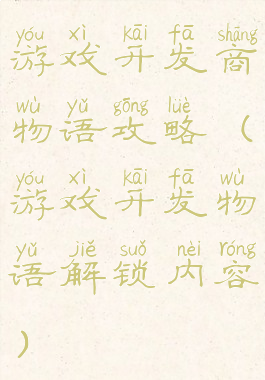 yóu xì kāi fā shāng
游戏开发商
wù yǔ gōng lüè
物语攻略（
yóu xì kāi fā wù
游戏开发物
yǔ jiě suǒ nèi róng
语解锁内容
）